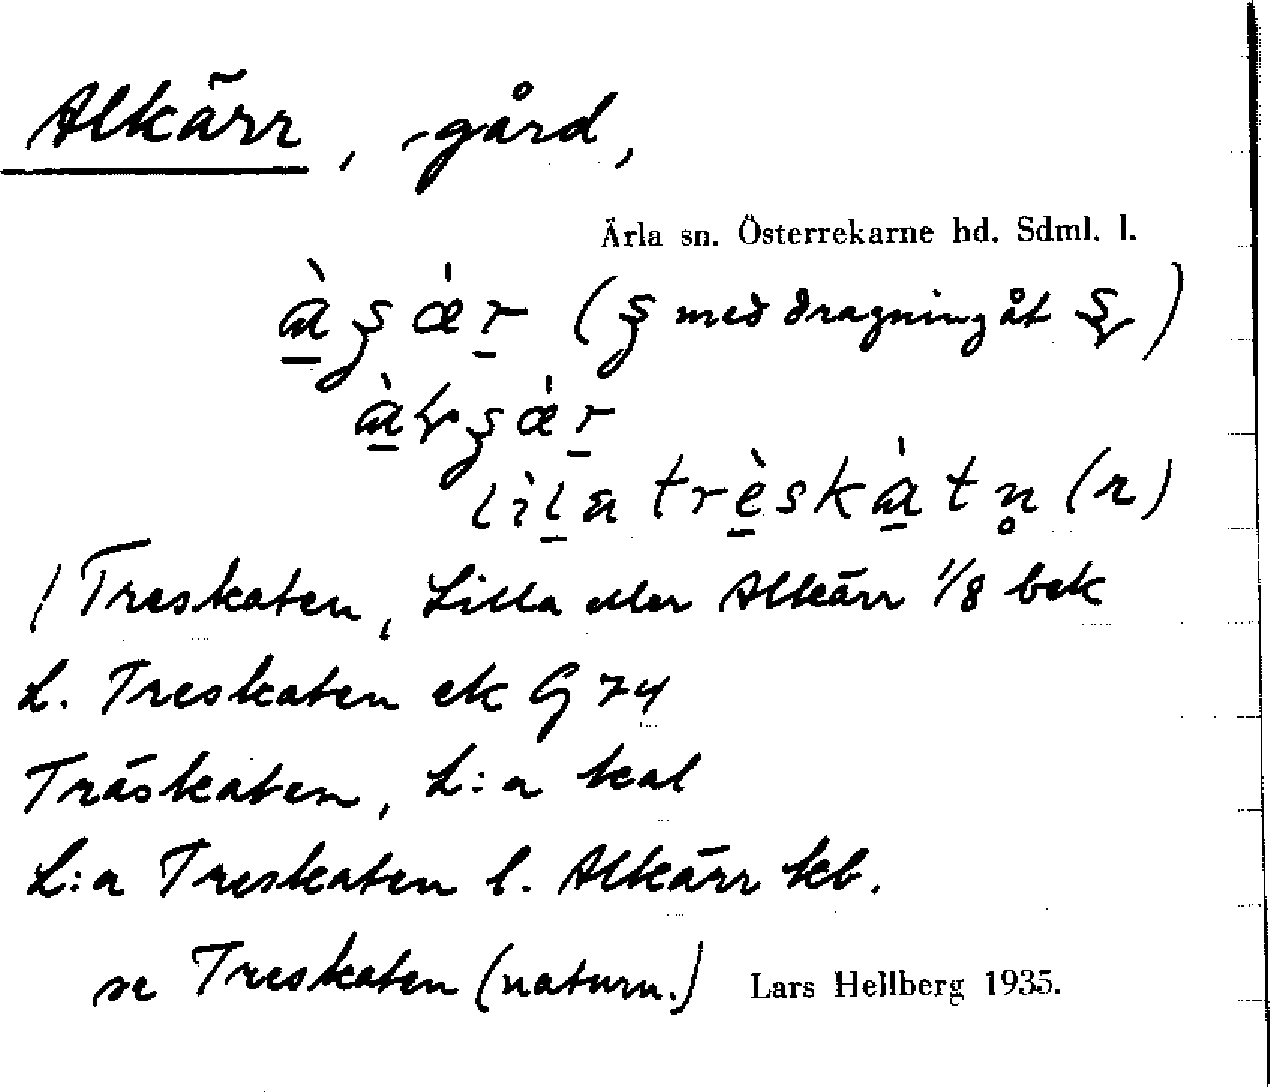 Alkärr, gård,
Ärla sn. Österrekarne hd. Sdml. l.
(ʂ med dragning åt
lìla trèskát n̥ (n)
Treskaten, Lilla eller Alkärr 1/8 bek
L. Treskaten ek G 74
Träskaten, L:a kal
L:a Treskaten l. Alkärr kb.
se Treskaten (naturn.) Lars Hellberg 1935.